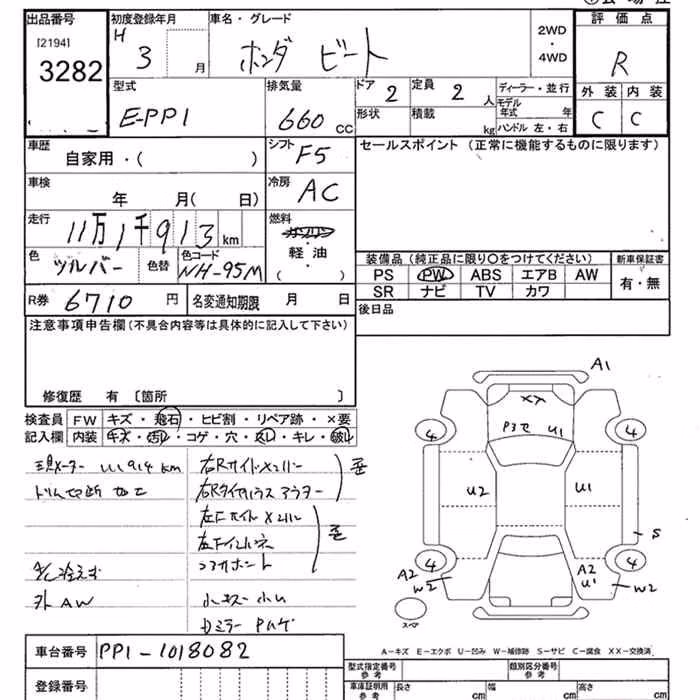 出品番号
[2194]
3282
初度登録年月
H 3 月
車名・グレード
ホンダ ビート
2WD
・
4WD
評価点
R
外装 内装
C C
型式
E-PP1
排気量
660 cc
ドア 2
定員 2 人
形状
積載 kg
ディーラー・並行
モデル年式 年
ハンドル 左・右
車歴
自家用・( )
シフト F5
セールスポイント (正常に機能するものに限ります)
車検
年 月( 日)
冷房 AC
走行
11万1千913 km
燃料
ガソリン
軽・油
( )
色 シルバー
色替
色コード NH-95M
装備品 (純正品に限り〇をつけてください)
新車保証書
PS PW ABS エアB AW
SR ナビ TV カワ
有・無
R券 6710 円
名変通知期限 月 日
後日品
注意事項申告欄(不具合内容等は具体的に記入して下さい)
修復歴 有 〔箇所 〕
検査員 FW キズ・飛石・ヒビ割・リペア跡・×要
記入欄 内装 キズ・汚レ・コゲ・穴・スレ・キレ・破レ
111914 km
右Rサイドメンバー
右Rタイヤハウス アウター
歪
左Fサイドメンバー
左Fインパネ
コアサポート
歪
外AW
小キズ 小凹
A1
XX
P3セ U1
4 4
U2 U1
S
4 4
A2
W2
A2
U1
W2
スペア
車台番号 PP1-1018082
登録番号
A−キズ E−エクボ U−凹み W−補修跡 S−サビ C−腐食 XX−交換済
型式指定番号 参考
類別区分番号 参考
車庫証明用 参考
長さ cm
幅 cm
高さ cm